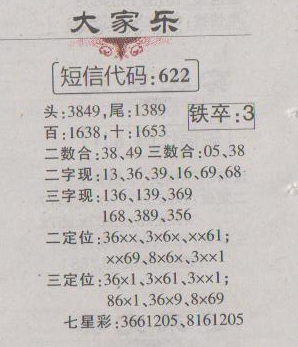 大家乐
短信代码:622
头:3849,尾:1389
铁卒:3
百:1638,十:1653
二数合:38、49 三数合:05、38
二字现:13、36、39、16、69、68
三字现:136、139、369
168、389、356
二定位:36××、3×6×、××61;
××69、8×6×、3××1
三定位:36×1、3×61、3××1;
86×1、36×9、8×69
七星彩:3661205、8161205